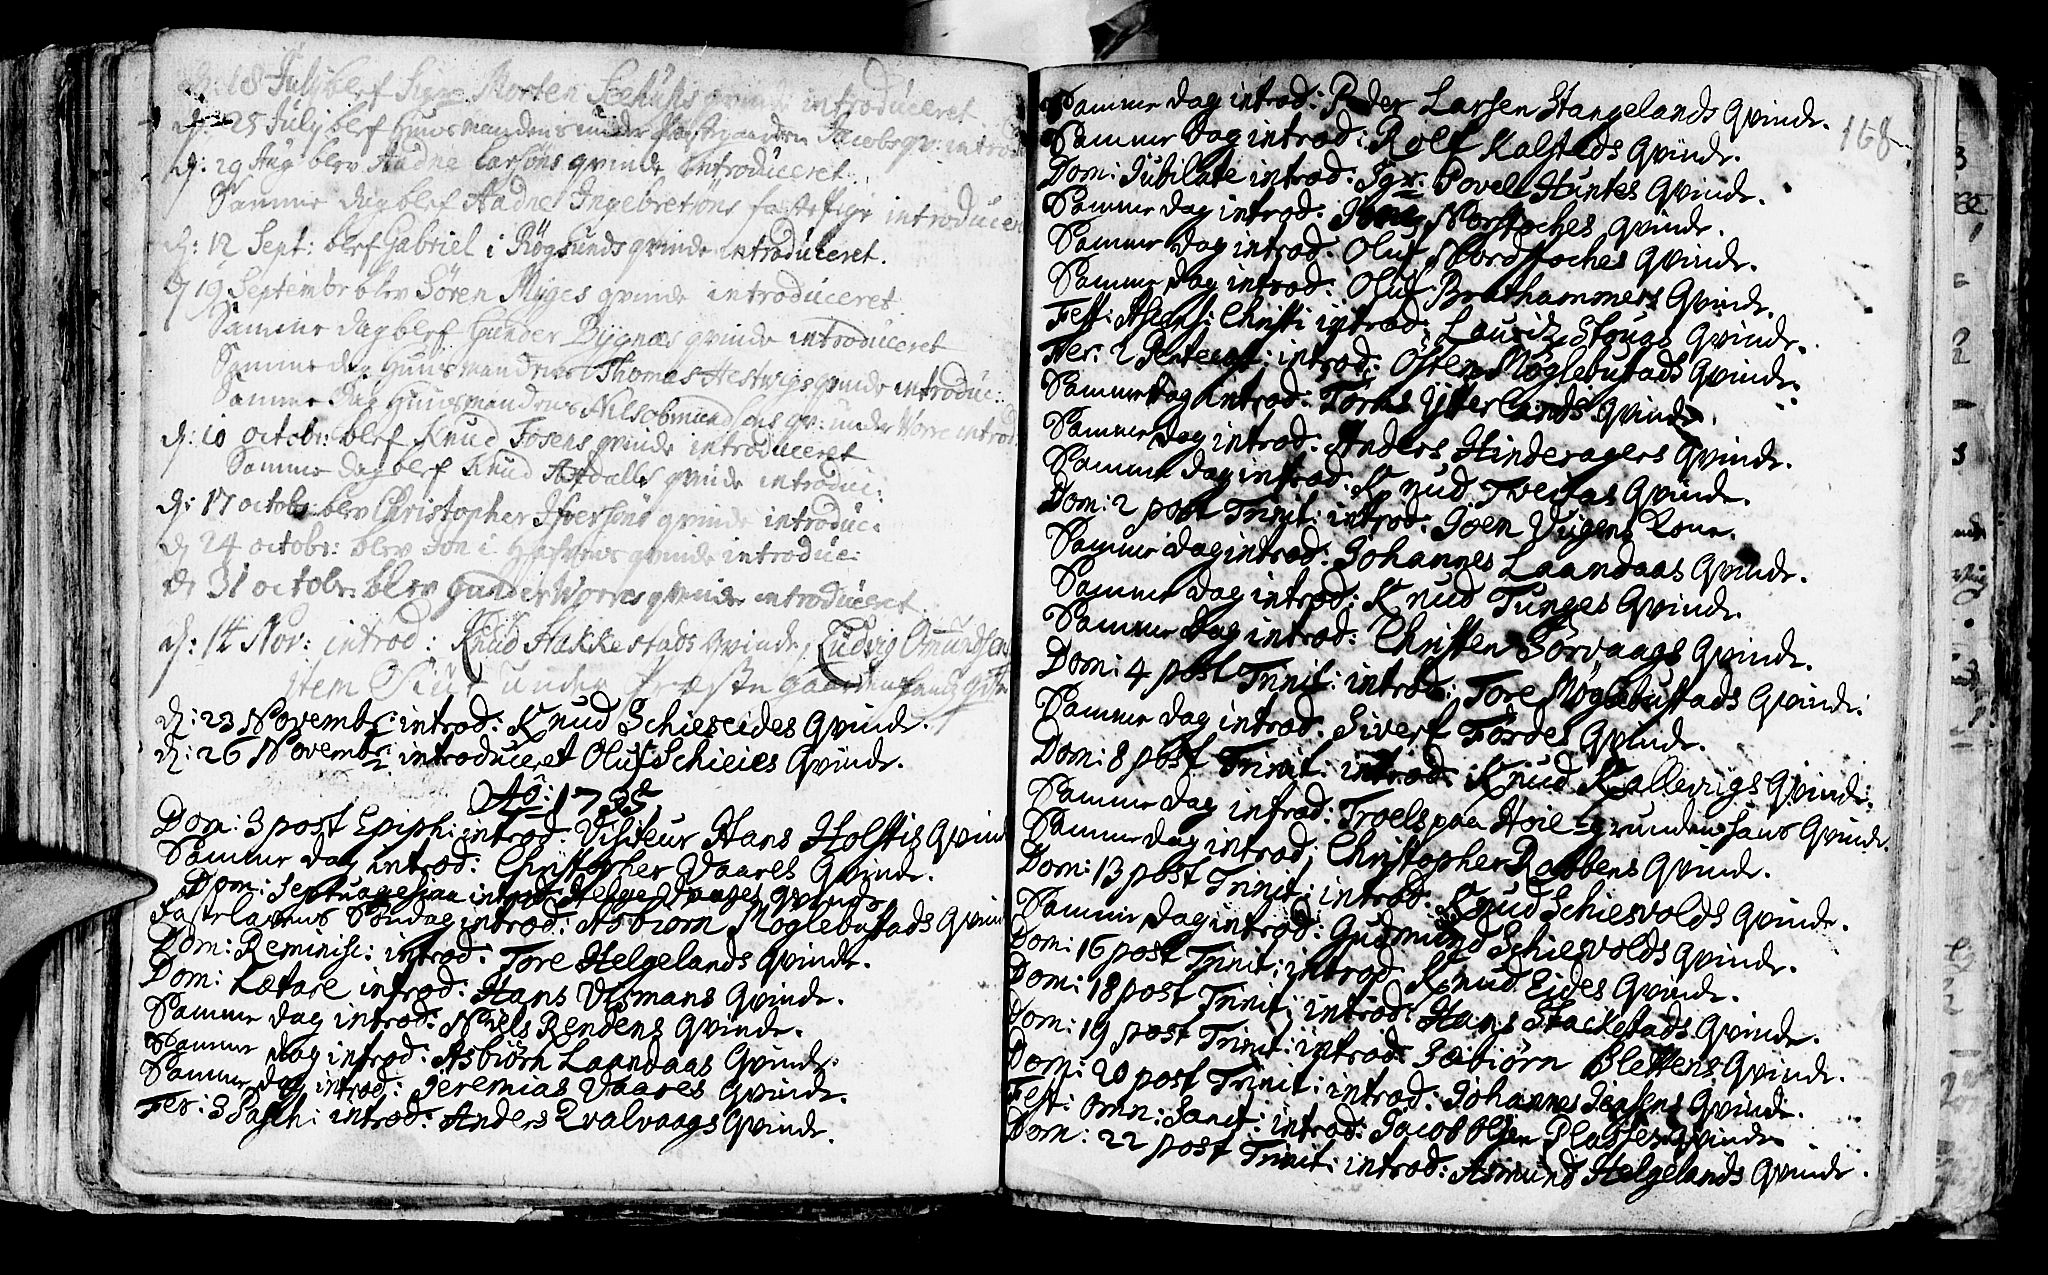 d: 18 July blef Sigr Morten Seehuses qvinde introduceret.
d: 25 July blef Huusmandens under Præstgaarden Jacobs qv: introd
d: 29 Aug blev Aadne Larsøns qvinde introduceret.
Samme dag blef Aadne Ingebretsøns fæstepige introducer
d: 12 Sept: blef Gabriel i Røgsunds qvinde introduceret.
d 19 Septembr blev Søren Myges qvinde introduceret
Samme dag blef Gunder Bygnæs qvinde introduceret
Samme dag Huusmandens Thomas Hestvigs qvinde introduc:
Samme dag Huusmandens Nils Obmundsøns qv: under Vorre introd
d: 10 octobr: blef Knud Fosens qvinde introduceret
Samme dag blef Knud Aafdalls qvinde introduc:
d: 17 octobr blev Christopher Ifversøns qvinde introduc:
d 24 octobr: blev Jon i qvinde introduc:
d: 31 octobr: blev Gunder Worres qvinde introduceret.
d: 14 Nov: introd: Knud Hakkestads Qvinde, Ludvig Omundsen
item under Præstegaarden
d: 23 Novembr: introd: Knud Schieseides Qvinde.
d: 26 Novembr: introduceret Oluf Schieies Qvinde.
Aō: 1735
Dom: 3 post Epiph: introd: Visiteur Hans Holstis Qvind
Samme dag introd: Christopher Vaares Qvinde.
Dom: Septuagesima introd: Helge Vaages Qvinde
Fastelavns Søndag introd: Asbiørn Møglebustads Qvind
Dom: Reminisc: introd: Tore Helgelands Qvinde.
Dom: Lætare introd: Hans Vismans Qvinde.
Samme dag introd: Niels Rendens Qvinde.
Samme dag introd: Asbiørn Laandaas Qvinde.
Samme dag introd: Jeremias Vaares Qvinde.
Fer: 3 Pasch: introd: Anders Qvalvaags Qvinde.
168
Samme dag introd: Peder Larsen Stangelands Qvinde.
Samme dag introd: Rolf Kalsteds Qvinde.
Dom: Jubilate introd: Sgr. Povel Huntes Qvinde.
Samme dag introd: Norstoches Qvinde.
Samme dag introd: Oluf Nordstoches Qvinde.
Samme dag introd: Oluf Brathammers Qvinde.
Fest: Ascens: Christi introd: Lauritz Stougs Qvinde.
Fer: 2 Pentecost: introd: Østen Møglebustads Qvinde.
Samme dag introd: Tores Ytterlands Qvinde.
Samme dag introd: Anders Hinderagers Qvinde.
Samme dag introd: Knud Tveitas Qvinde.
Dom: 2 post Trinit: introd: Joen Vigens Kone.
Samme dag introd: Johannes Laandaas Qvinde.
Samme dag introd: Knud Tunges Qvinde.
Samme dag introd: Christen Sørvaags Qvinde.
Dom: 4 post Trinit: introd: Tore Møglebustads Qvinde.
Samme dag introd: Siverf Førdes Qvinde.
Dom: 8 post Trinit: introd: Knud Kallevigs Qvinde.
Samme dag introd: Troels paa Hvie-grundens hans Qvinde.
Samme dag introd: Christopher Røbbens Qvinde.
Dom: 13 post Trinit: introd: Knud Schiesvolds Qvinde.
Samme dag introd: Gudmund Schiesvolds Qvinde.
Dom: 16 post Trinit: introd: Knud Eides Qvinde.
Dom: 18 post Trinit: introd: Hans Stackestads Qvinde.
Dom: 19 post Trinit: introd: Sæbiørn Blettens Qvinde.
Dom: 20 post Trinit: introd: Johannes Jensens Qvinde.
Fest: Omn: Sanct: introd: Jacob Olsen Pladsens Qvinde
Dom: 22 post Trinit: introd: Asmund Helgelands Qvinde.